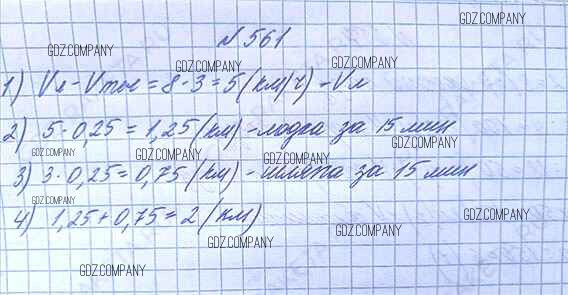 GDZ.COMPANY
№ 561
GDZ.COMPANY GDZ.COMPANY
GDZ.COMPANY
1) Vл - Vтеч = 8 - 3 = 5 (км/ч) - Vл
GDZ.COMPANY
2) 5 · 0,25 = 1,25 (км) - лодка за 15 мин
GDZ.COMPANY GDZ.COMPANY GDZ.COMPANY
3) 3 · 0,25 = 0,75 (км) - шляпа за 15 мин
GDZ.COMPANY
4) 1,25 + 0,75 = 2 (км)
GDZ.COMPANY
GDZ.COMPANY
GDZ.COMPANY
GDZ.COMPANY